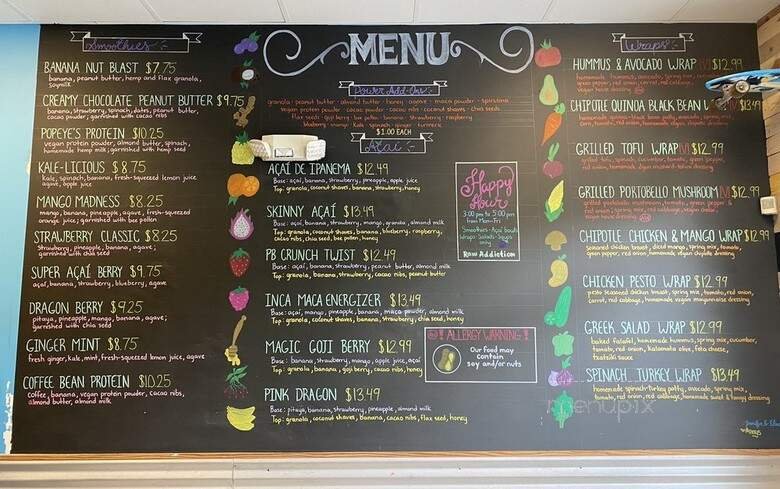 MENU
Smoothies
BANANA NUT BLAST $7.75
banana, peanut butter, hemp and flax granola,
soymilk
CREAMY CHOCOLATE PEANUT BUTTER $9.75
banana, spinach, dates, peanut butter, cacao
powder, garnished with cacao nibs
POPEYE'S PROTEIN $10.25
vegan protein powder, almond butter, spinach,
homemade hemp milk; garnished with hemp seed
KALE-LICIOUS $8.75
kale, spinach, banana, fresh-squeezed lemon juice
agave, apple juice
MANGO MADNESS $8.25
mango, banana, pineapple, agave, fresh-squeezed
orange juice; garnished with bee pollen
STRAWBERRY CLASSIC $8.25
strawberry, pineapple, banana, agave;
garnished with chia seed
SUPER AÇAÍ BERRY $9.75
açaí, banana, strawberry, blueberry, agave
DRAGON BERRY $9.25
pitaya, pineapple, mango, banana, agave;
garnished with chia seed
GINGER MINT $8.75
fresh ginger, kale, mint, fresh-squeezed lemon juice, agave
COFFEE BEAN PROTEIN $10.25
coffee, banana, vegan protein powder, cacao nibs,
almond butter, almond milk
Power Add-Ons
granola · peanut butter · almond butter · honey · agave · maca powder · spirulina
Vegan protein powder · cacao powder · cacao nibs · coconut shaves · chia seeds
flax seeds · goji berry · bee pollen · banana · strawberry · raspberry
blueberry · mango · kale · spinach · ginger · turmeric
$1.00 EACH
Açaí
AÇAÍ DE IPANEMA $12.49
Base: açaí, banana, strawberry, pineapple, apple juice
Top: granola, coconut shaves, banana, strawberry, honey
SKINNY AÇAÍ $13.49
Base: açaí, banana, strawberry, mango, granola, almond milk
Top: granola, coconut shaves, banana, blueberry, raspberry,
cacao nibs, chia seed, bee pollen, honey
PB CRUNCH TWIST $12.49
Base: açaí, banana, strawberry, peanut butter, almond milk
Top: granola, banana, strawberry, cacao nibs, peanut butter
INCA MACA ENERGIZER $13.49
Base: açaí, mango, pineapple, banana, maca powder, almond milk
Top: granola, coconut shaves, banana, strawberry, chia seed, honey
MAGIC GOJI BERRY $12.99
Base: banana, strawberry, mango, apple juice, açaí
Top: granola, banana, goji berry, cacao nibs, honey
PINK DRAGON $13.49
Base: pitaya, banana, strawberry, pineapple, almond milk
Top: granola, coconut shaves, banana, cacao nibs, flax seed, honey
Happy
Hour
3:00 pm to 5:00 pm
from Mon-Fri
Smoothies · Açaí bowls
Wraps · Salads · Soups
only
Raw Addiction
! ALLERGY WARNING !
Our food may
contain
soy and/or nuts
Wraps
HUMMUS & AVOCADO WRAP [V] $12.99
homemade hummus, avocado, spring mix,
CHIPOTLE QUINOA BLACK BEAN $13.49
homemade quinoa-black bean patty, avocado, spring mix,
corn, tomato, red onion, homemade vegan chipotle dressing
GRILLED TOFU WRAP [V] $12.99
grilled tofu, spinach, cucumber, tomato, green pepper,
red onion, homemade dijon mustard-tahini dressing
GRILLED PORTOBELLO MUSHROOM [V] $12.99
grilled portobello mushroom, tomato, green pepper &
red onion; spring mix, red cabbage, vegan caesar,
CHIPOTLE CHICKEN & MANGO WRAP $12.99
seasoned chicken breast, diced mango, spring mix, tomato,
green pepper, red onion, homemade vegan chipotle dressing
CHICKEN PESTO WRAP $12.99
pesto seasoned chicken breast, spring mix, tomato, red onion,
carrot, red cabbage, homemade vegan mayonnaise dressing
GREEK SALAD WRAP $12.99
baked falafel, homemade hummus, spring mix, cucumber,
tomato, red onion, kalamata olive, feta cheese,
tzatziki sauce
SPINACH TURKEY WRAP $13.49
homemade spinach-turkey patty, avocado, spring mix,
tomato, red onion, red cabbage, homemade sweet & tangy dressing
menupix